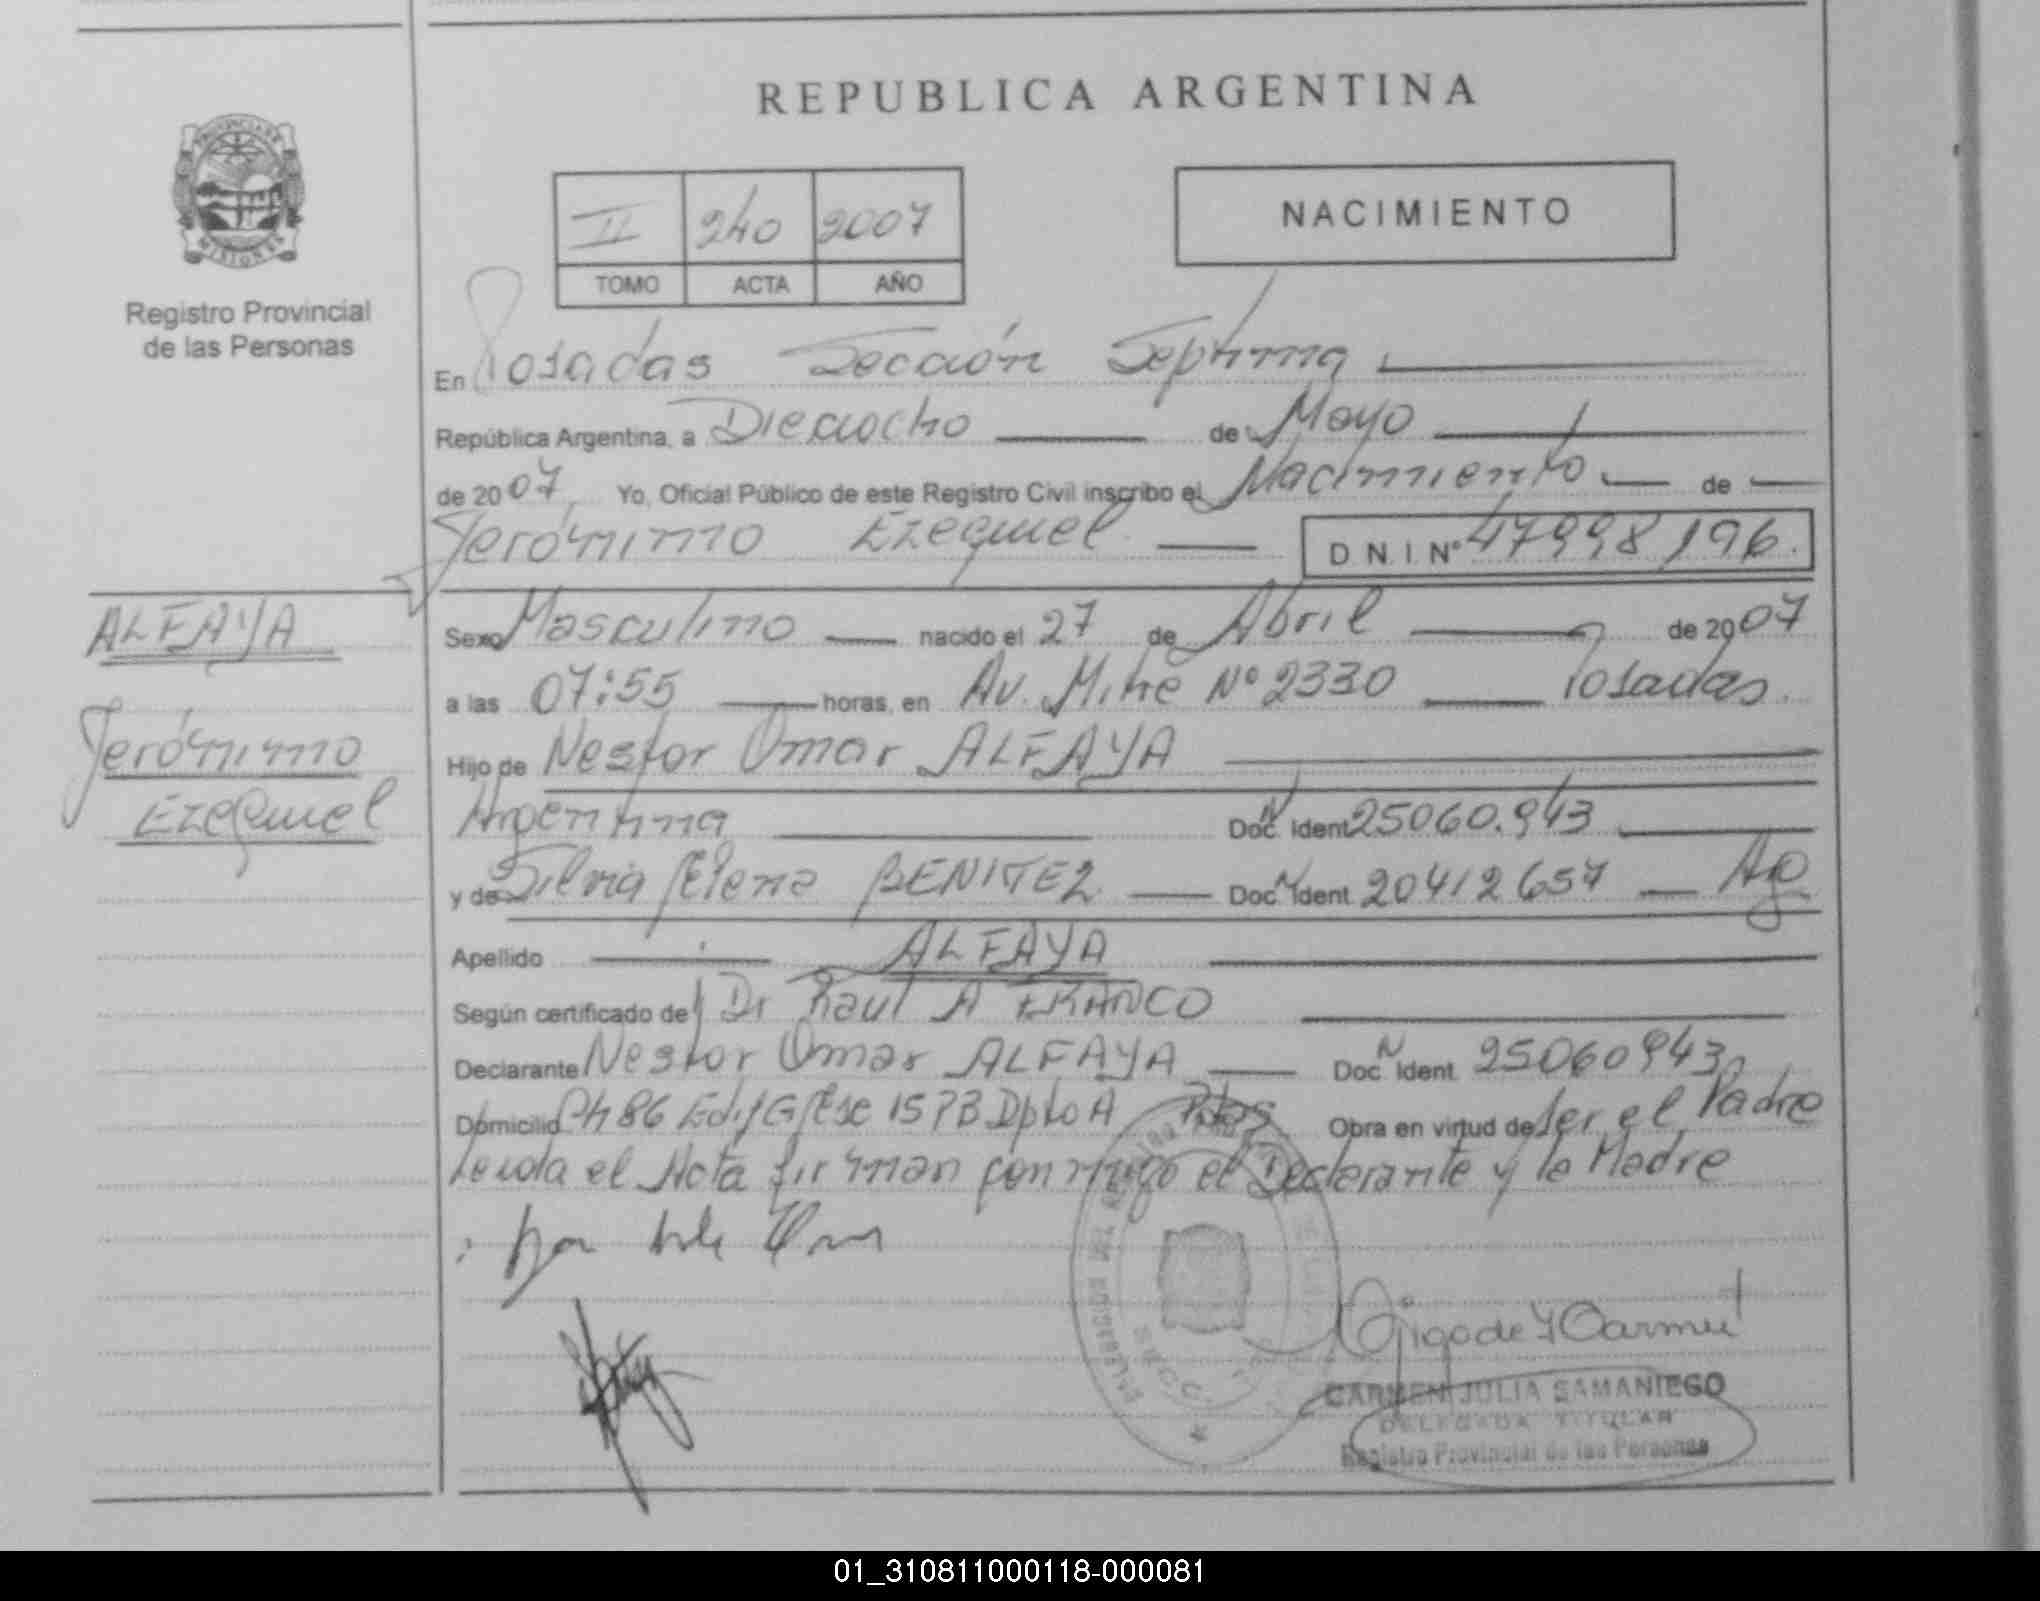 REPUBLICA ARGENTINA
PROVINCIA DE
MISIONES
Registro Provincial
de las Personas
II 240 2007
TOMO ACTA AÑO
NACIMIENTO
En Posadas Sección Septima
República Argentina, a Dieciocho de Mayo
de 2007 Yo, Oficial Público de este Registro Civil inscribo el Nacimiento de
Jerónimo Ezequiel D.N.I. Nº 47998196.
ALFAYA
Jerónimo
Ezequiel
Sexo Masculino nacido el 27 de Abril de 2007
a las 07:55 horas, en Av. Mitre Nº 2330 Posadas.
Hijo de Nestor Omar ALFAYA
Argentina Doc. Ident 25060.943
y de Silvia Elena BENITEZ Doc. Ident. 20412657 Ag
Apellido ALFAYA
Según certificado de Dr Raul A FRANCO
Declarante Nestor Omar ALFAYA Doc. Ident. 25060943
Domicilio Ch 86 Edif G Esc 15 PB Dpto A Pdas Obra en virtud de Ser el Padre
Leida el Acta firman conmigo el Declarante y la Madre
CARMEN JULIA SAMANIEGO
DELEGADA TITULAR
Registro Provincial de las Personas
01_310811000118-000081